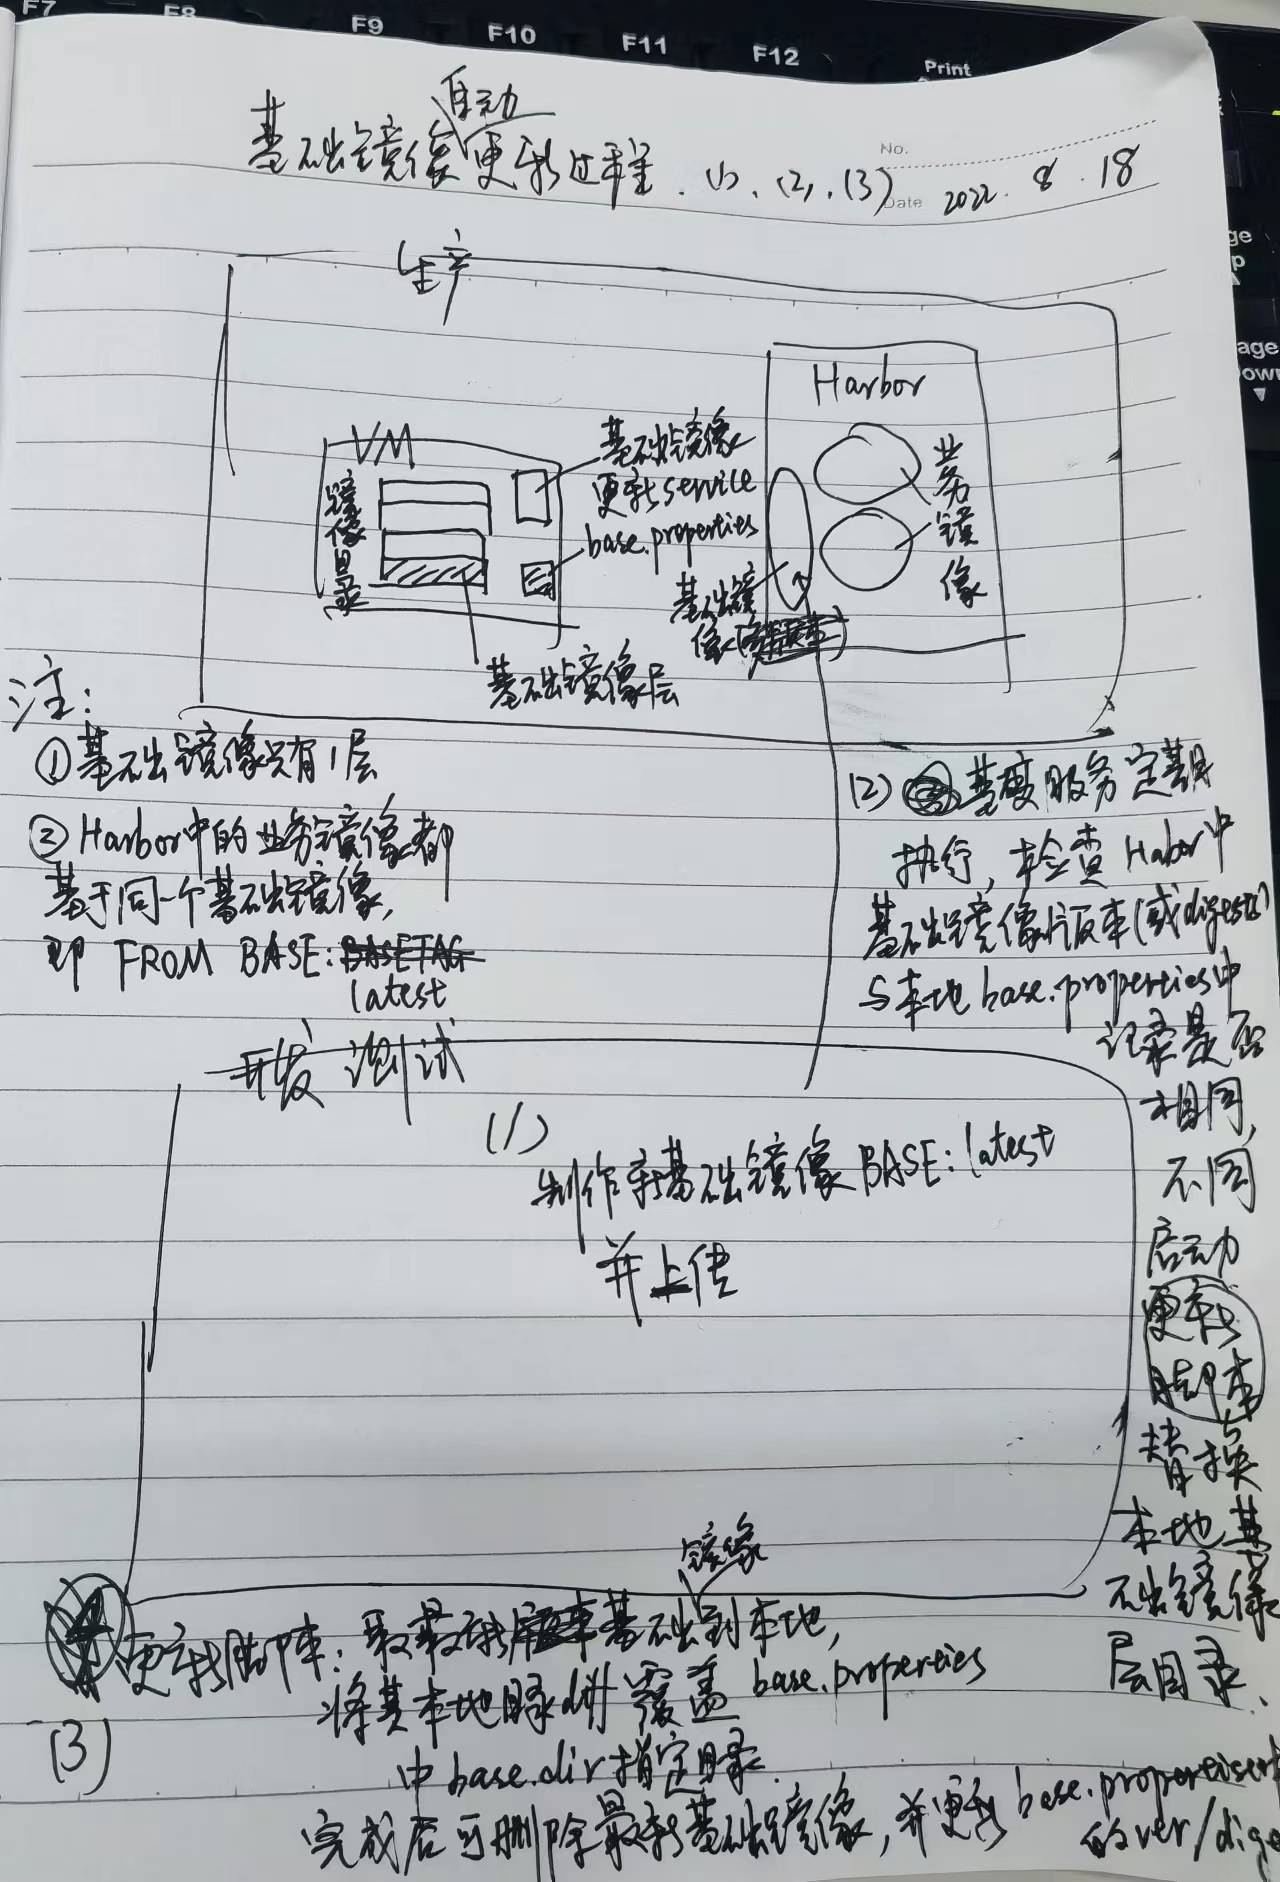 F7
F8
F9
F10
F11
F12
Print
自动
基础镜像更新过程. (1)、(2)、(3)
No.
Date 2022. 8. 18
生产
Harbor
VM
镜像目录
基础镜像
更新service
base.properties
业务镜像
基础镜
像
基础镜像层
注:
①基础镜像只有1层
②Harbor中的业务镜像都
基于同一个基础镜像,
即 FROM BASE: BASETAG
latest
(2) 服务定期
执行, 检查 Habor中
基础镜像版本(或digest)
与本地base.properties中
记录是否
相同,
不同
启动
更新
脚本
替换
本地基
础镜像
层目录.
开发 测试
(1)
制作新基础镜像 BASE: latest
并上传
镜像
更新脚本: 基础到本地,
将其本地目录 覆盖 base.properties
(3)
中 base.dir指定目录.
完成后可删除最新基础镜像, 并更新 base.properties中
的ver/dige
ge
p
age
Down